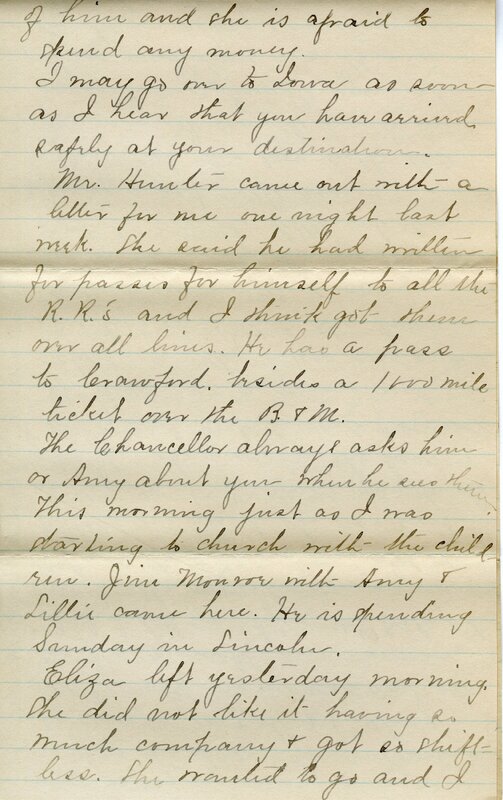 of him and she is afraid to
spend any money.
I may go over to Iowa as soon
as I hear that you have arrived
safely at your destination.
Mr. Hunter came out with a
letter for me one night last
week. She said he had written
for passes for himself to all the
R. R.'s and I think got them
over all lines. He has a pass
to Crawford, besides a 1000 mile
ticket over the B & M.
The Chancellor always asks him
or Amy about you when he sees them.
This morning just as I was
starting to church with the child
ren. Jim Monroe with Amy &
Lillie came here. He is spending
Sunday in Lincoln.
Eliza left yesterday morning.
She did not like it having so
much company & got so shift-
less. She wanted to go and I